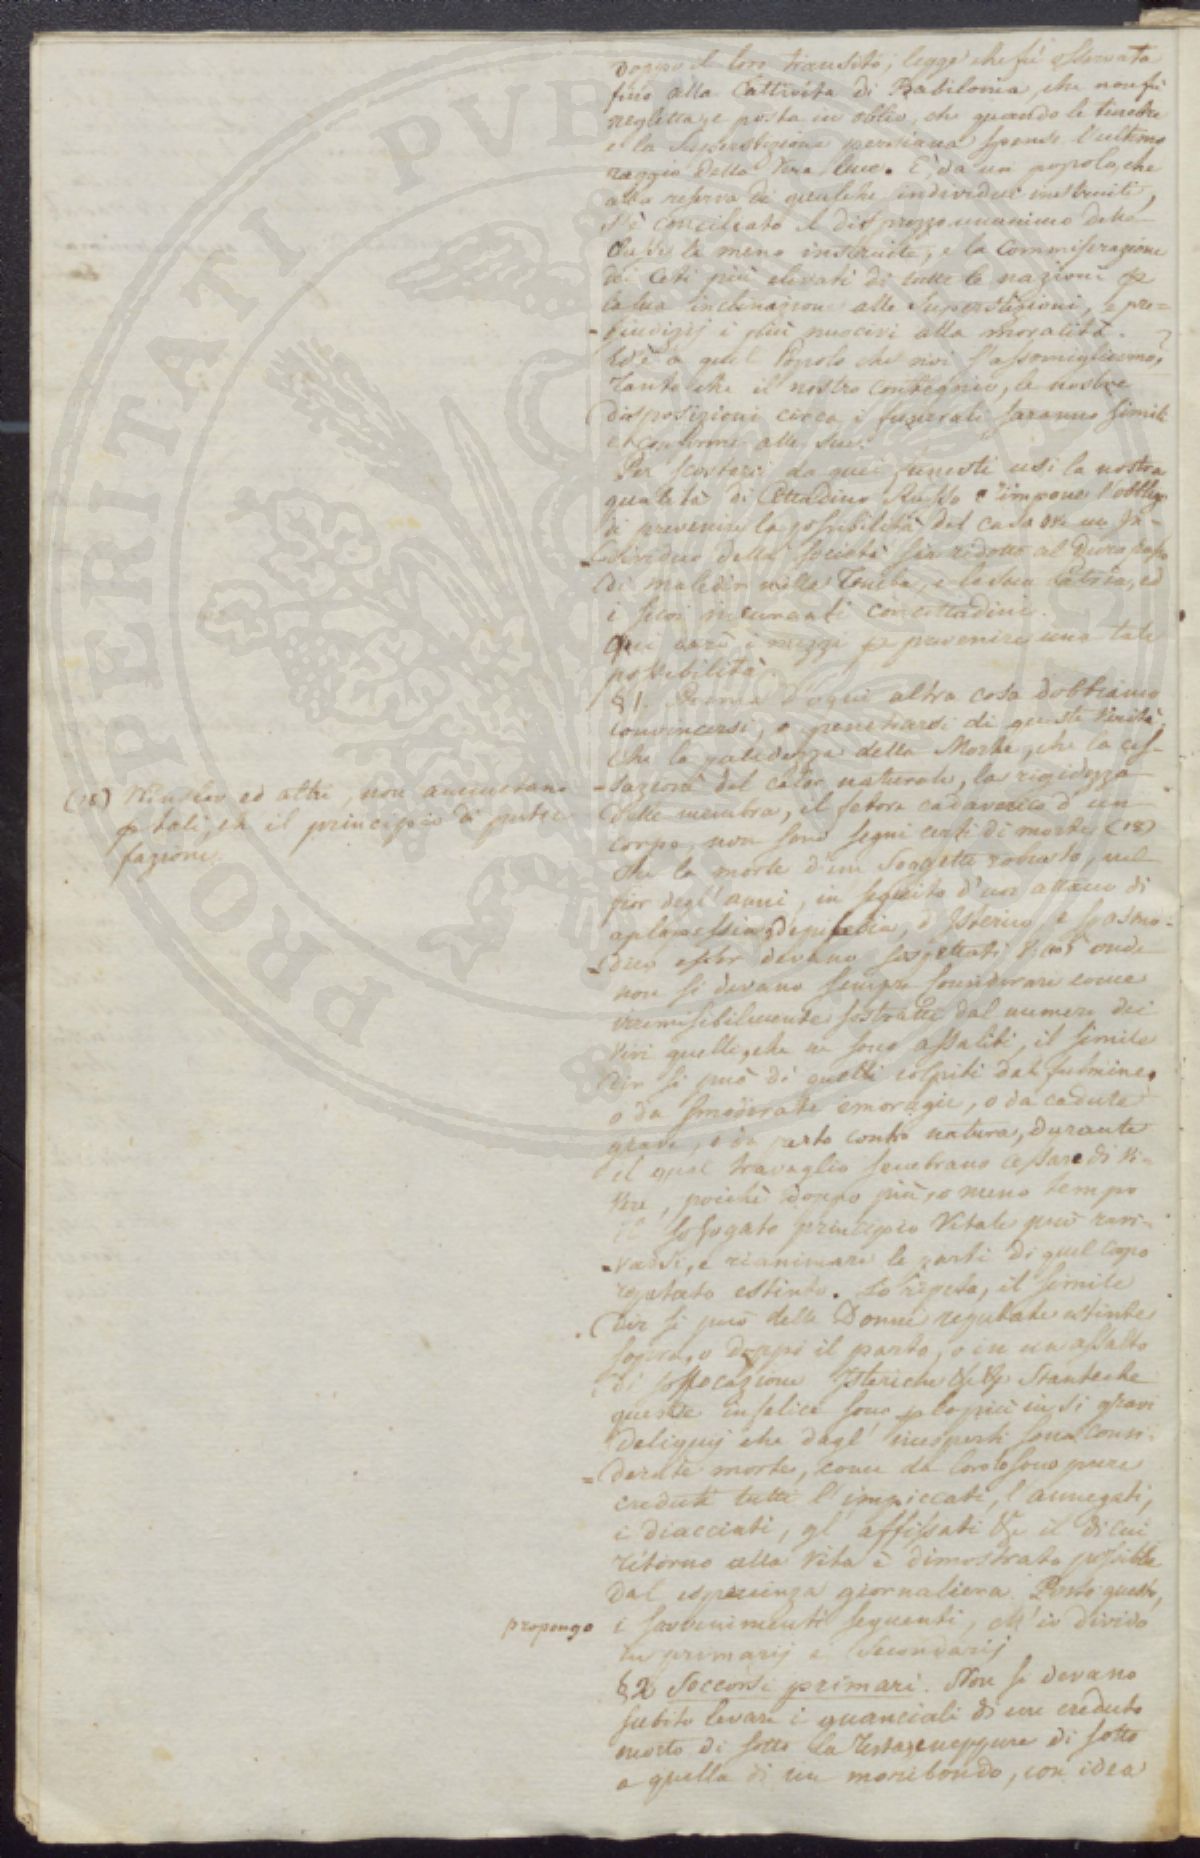 doppo il loro transito; legge che fu osservata
fino alla Cattività di Babilonia, che non fu
negletta, e posta in oblio, che quando le tenebre
e la Superstizione persiana spense l'ultimo
raggio della Vera luce. E' da un popolo, che
alla riserva di qualche individui instruiti,
s'è conciliato il disprezzo unanimo delle
Classi le meno instruite, e la Commiserazione
dei Ceti più elevati di tutte le nazioni p
la sua inclinazione alle Superstizioni, e pre=
=giudizij i più nuocivi alla moralità.
Ed è a quel Popolo che noi s'assomigliaremo,
Tanto che il nostro contegnio, le nostre
disposizioni circa i funerali saranno simili
e conforme alle sue.
Per scostarsi da quei funesti usi la nostra
qualità di Cittadino Russo c'impone l'obbligo
di prevenire la possibilità del caso che un In-
=dividuo della Società sia ridotto al duro passo
di maledir nella Tomba, e la sua Patria, ed
i suoi incuranti concittadini.
Qui sarà i mezzi p prevenire una tale
possibilità
§1. Prima d'ogni altra cosa dobbiamo
convincersi, e penetrarsi di queste Verità.
Che la palidezza della Morte, che la ces-
=sazione del calor naturale, la rigidezza
delle membra, il fetore cadaverico d'un
corpo, non sono segni certi di morte (18)
(18) Winslov ed altri, non ammettano
p tali, ch' il principio di putre
fazione.
Che la morte d'un Soggetto robusto, nel
fior degl'anni, in seguito d'un attacco di
aplopessia, d'epilessia, d'Isterico e spasmo-
=dico esser devano sospettati onde
non si devano sempre considerare come
irremisibilmente sostratti dal numero dei
Vivi quelli, che ne sono assaliti, il simile
dir si può di quelli colpiti dal fulmine,
o da smoderate emoragie, o da cadute
grave, o da parto contro natura, durante
il qual travaglio sembrano cessare di vi-
vere, poichè doppo più, o meno tempo
il soffogato principio Vitale può ravi-
varsi, e rianimare le parti di quel Corpo
reputato estinto. Lo ripeto, il simile
dir si può delle Donne reputate estinte
sopra, o doppo il parto, o in un assalto
di soffocazione Isteriche &c &c Stanteche
queste infelice sono p lo più in sì gravi
deliquij che dagl' inesperti sono consi-
=derate morte, come da loro lo sono pure
creduti tutti l'impiccati, l'annegati,
i diacciati, gl' affissati &c il di cui
ritorno alla Vita è dimostrato possibile
dal esperienza giornaliera. Posto questo,
propongo i sovvenimenti seguenti, ch'io divido
in primarij e Secondarij
§2 Soccorsi primari. Non si devano
subito levare i guanciali di un creduto
morto di sotto la Testa, e neppure di sotto
a quella di un moribondo, con idea
PRO PERITATI PVB